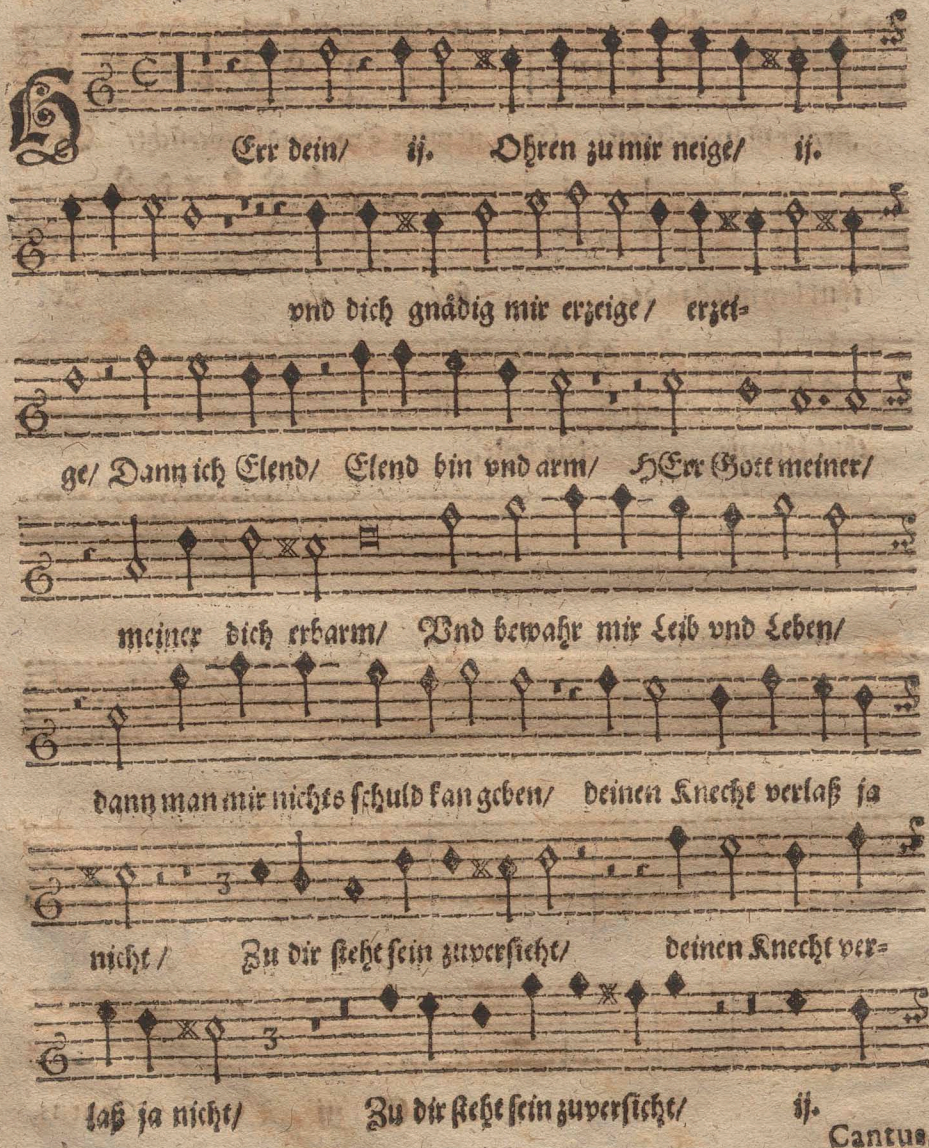 HErr dein/ ij. Ohren zu mir neige/ ij.
vnd dich gnådig mir erzeige/ erzei-
ge/ Dann ich Elend/ Elend bin vnd arm/ HErr Gott meiner/
meiner dich erbarm/ Vnd bewahr mir Leib vnd Leben/
dann man mir nichts schuld kan geben/ deinen Knecht verlaß ja
nicht/ Zu dir steht sein zuversicht/ deinen Knecht ver-
laß ja nicht/ Zu dir steht sein zuversicht/ ij.
Cantus